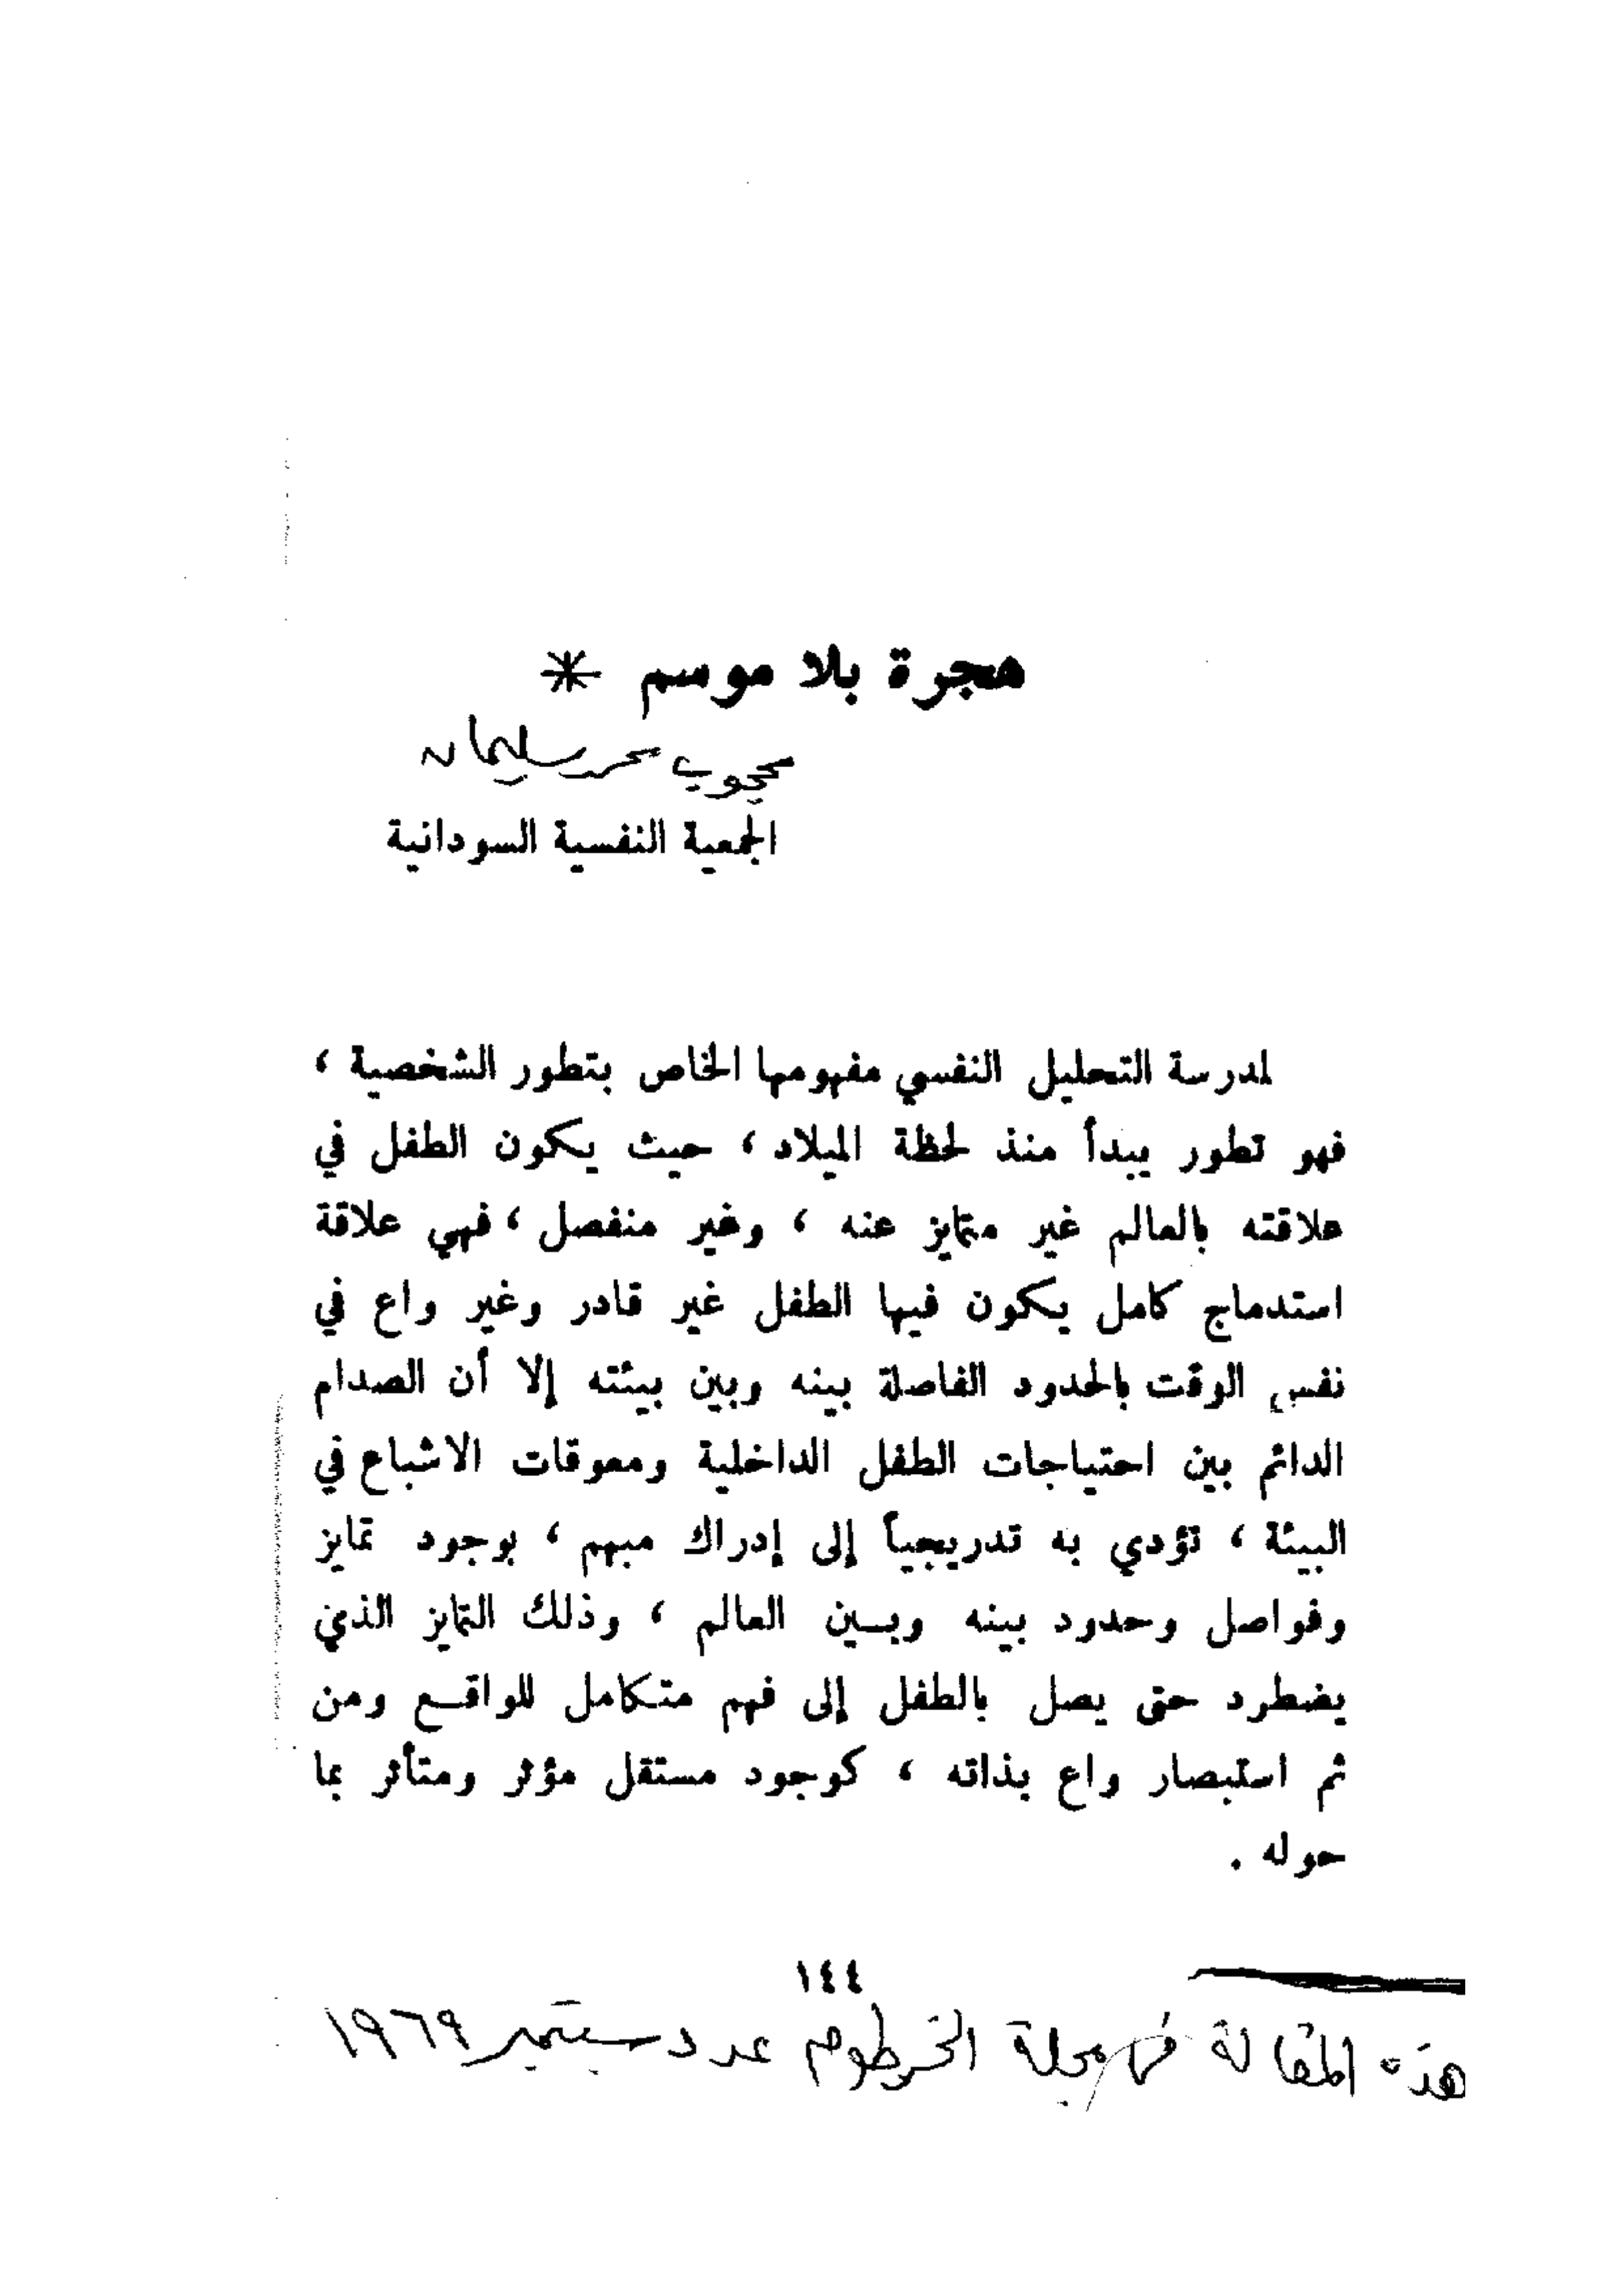 هجرة بلا موسم *
محجوب محمد سليمان
الجمعية النفسية السودانية
لمدرسة التحليل النفسي مفهومها الخاص بتطور الشخصية ،
فهو تطور يبدأ منذ لحظة الميلاد ، حيث يكون الطفل في
علاقته بالعالم غير متمايز عنه ، وغير منفصل ، فهي علاقة
استدماج كامل يكون فيها الطفل غير قادر وغير واع في
نفس الوقت بالحدود الفاصلة بينه وبين بيئته إلا أن الصدام
الدائم بين احتياجات الطفل الداخلية ومعوقات الاشباع في
البيئة ، تؤدي به تدريجياً إلى إدراك مبهم ، بوجود تمايز
وفواصل وحدود بينه وبين العالم ، وذلك التمايز الذي
يضطرد حتى يصل بالطفل إلى فهم متكامل للواقع ومن
ثم استبصار واع بذاته ، كوجود مستقل مؤثر ومتأثر بما
حوله .
١٤٤
هذه المقالة في مجلة الخرطوم عدد سبتمبر ١٩٦٩